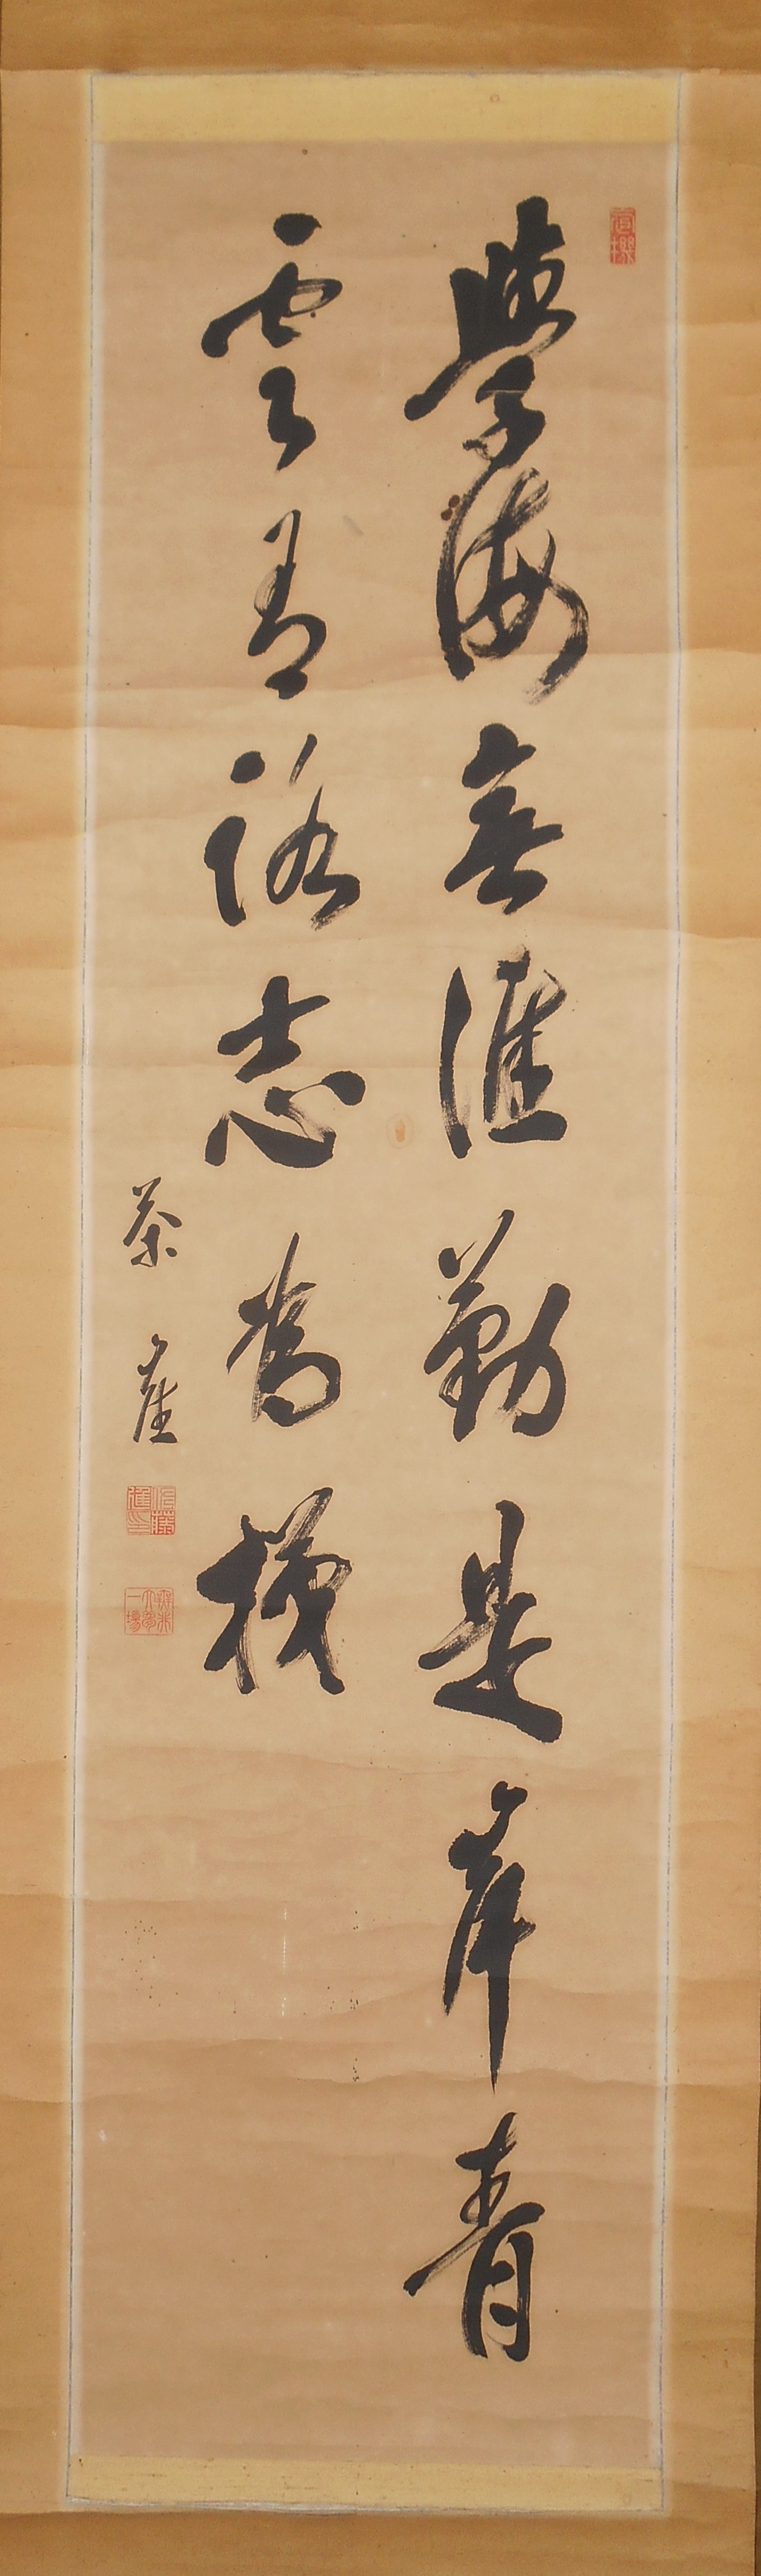 學海無涯勤是岸青
雲有路志為梯
茶崖